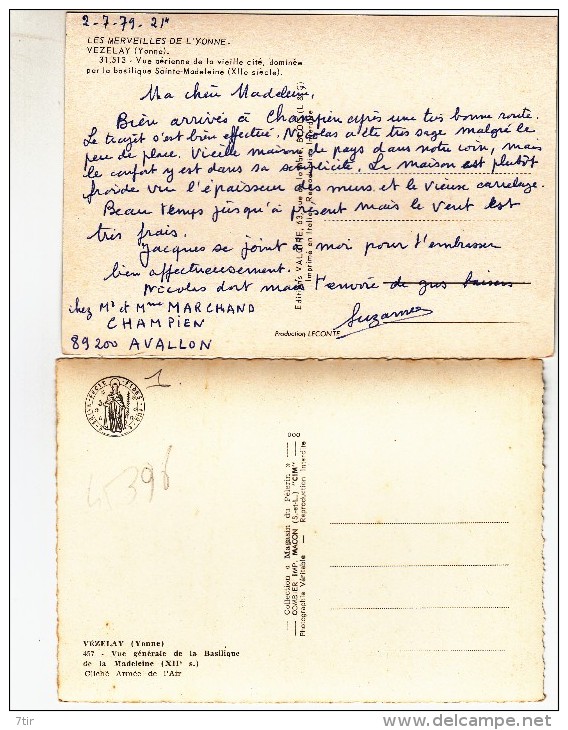 2-7-79 21h
LES MERVEILLES DE L'YONNE.
VEZELAY (Yonne).
31.513 - Vue aérienne de la vieille cité, dominée
par la basilique Sainte-Madeleine (XIIe siècle).
Ma chère Madeleine,
Bien arrivés à Champien après une très bonne route.
Le trajet s'est bien effectué. Nicolas a été très sage malgré le
peu de place. Vieille maison de pays dans notre coin, mais
le confort y est dans sa simplicité. La maison est plutôt
froide vu l'épaisseur des murs et le vieux carrelage.
Beau temps jusqu'à présent mais le vent est
très frais.
Jacques se joint à moi pour t'embrasser
bien affectueusement.
Nicolas dort mais t'envoie de gros baisers
Suzanne
chez Mr et Mme MARCHAND
CHAMPIEN
89200 AVALLON
Imprimé en Italie
Production LECONTE
1.
396
— Collection « Magasin du Pèlerin » —
— COMBIER IMP. MACON (S.-et-L.) "CIM" —
Photographie Véritable — Reproduction Interdite
VÉZELAY (Yonne)
457 - Vue générale de la Basilique
de la Madeleine (XIIe s.)
Cliché Armée de l'Air
7tir
www.delcampe.net